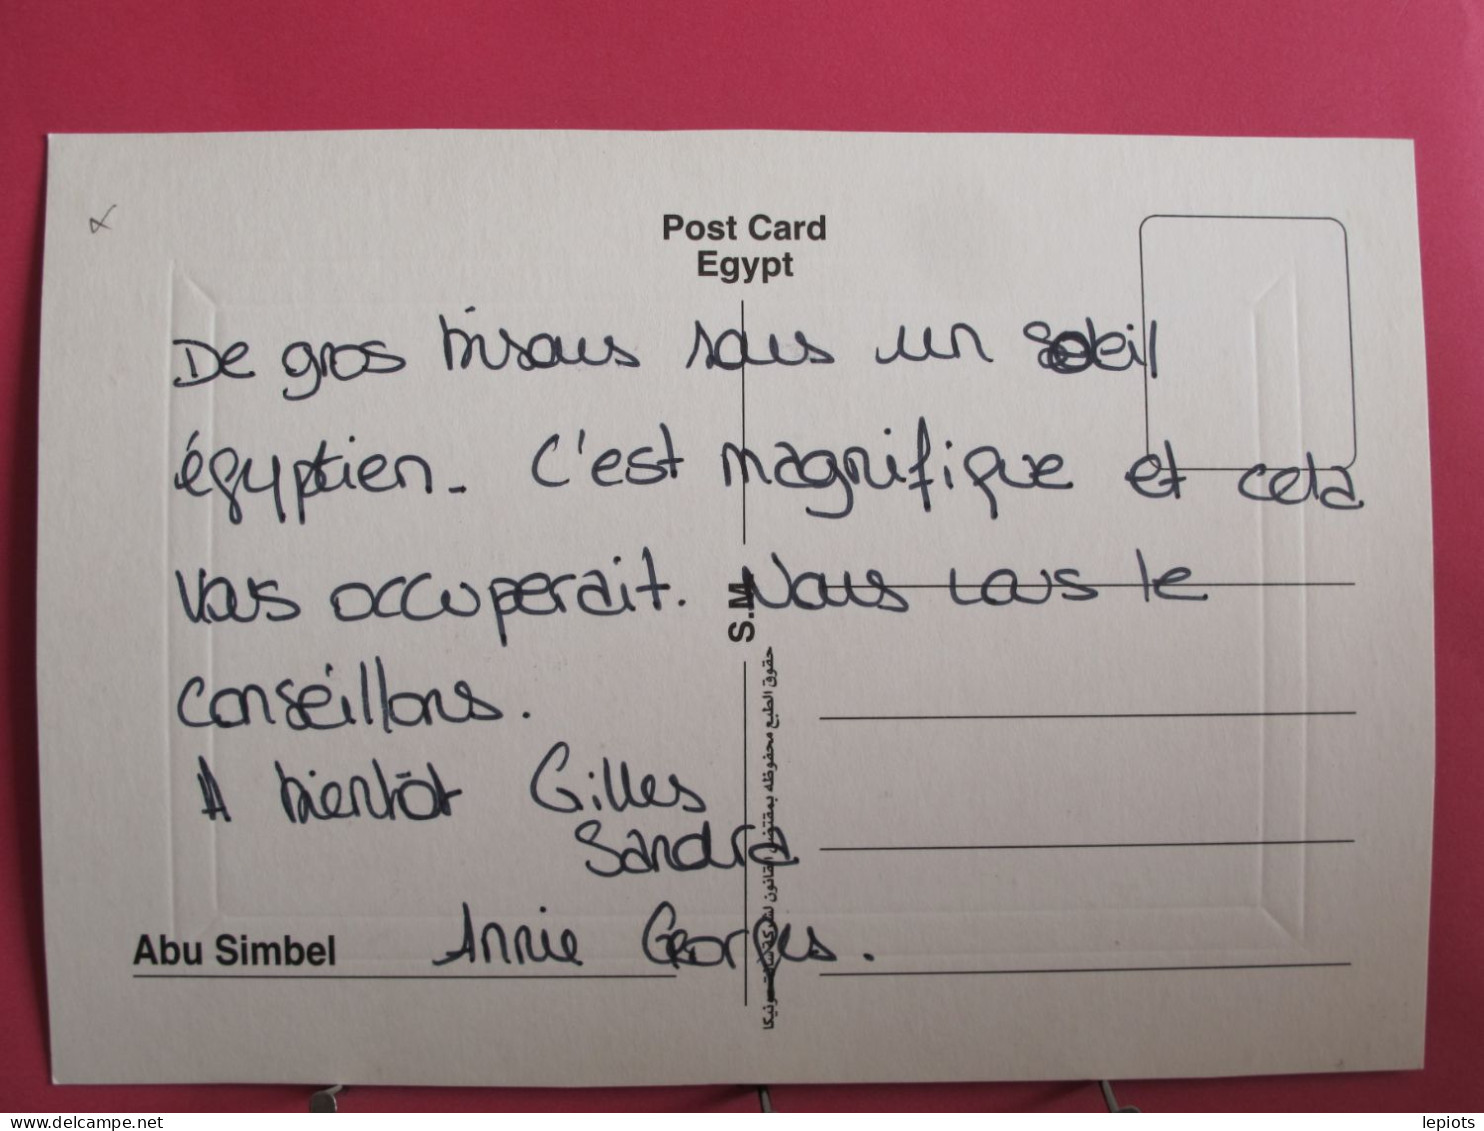 Post Card
Egypt
De gros bisous sous un soleil
égyptien. C'est magnifique et cela
vous occuperait. Nous vous le
conseillons.
A bientôt Gilles
Sandra
Annie Georges.
Abu Simbel
S.M
حقوق الطبع محفوظه بمقتضى القانون لشركة
delcampe.net
lepiots